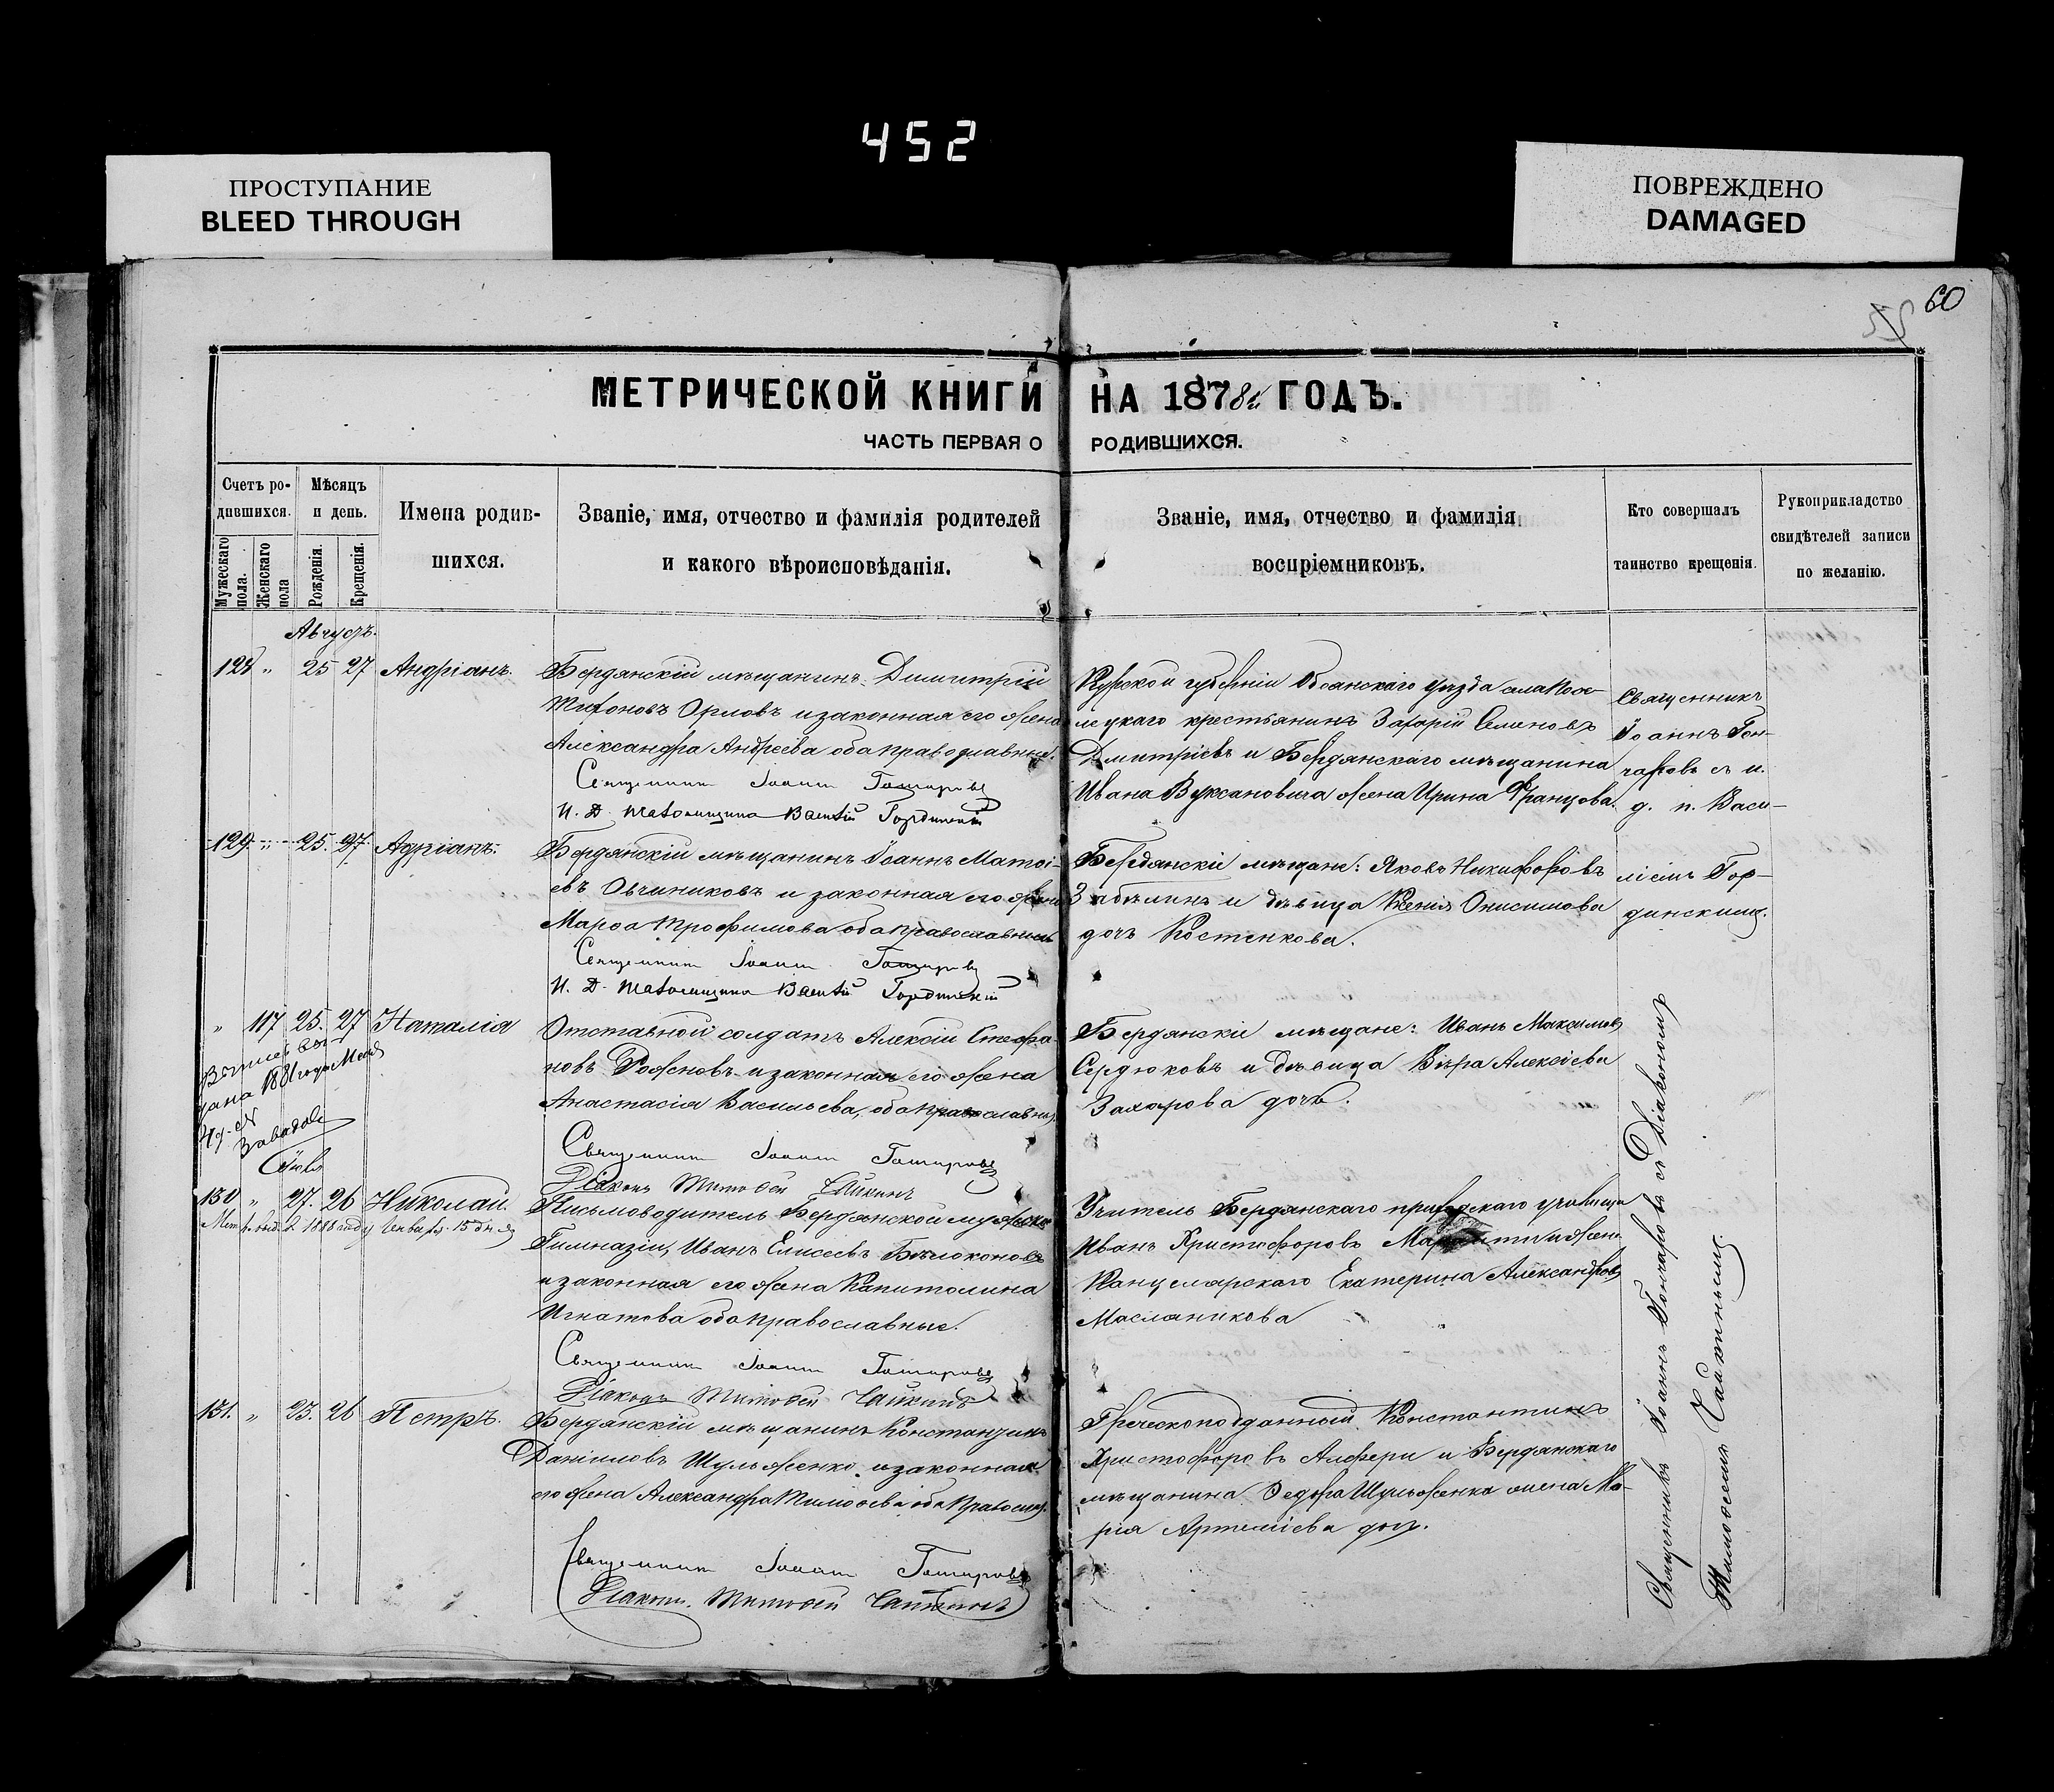 452
ПРОСТУПАНИЕ
BLEED THROUGH
ПОВРЕЖДЕНО
DAMAGED
60
МЕТРИЧЕСКОЙ КНИГИ НА 1878й ГОДЪ.
ЧАСТЬ ПЕРВАЯ О РОДИВШИХСЯ.
Счетъ родившихся.
Мужескаго пола.
Женскаго пола
Мѣсяцъ и день.
Рожденія.
Крещенія.
Имена родившихся.
Званіе, имя, отчество и фамилія родителей
и какого вѣроисповѣданія.
Званіе, имя, отчество и фамилія
воспріемниковъ.
Кто совершалъ
таинство крещенія.
Рукоприкладство
свидѣтелей записи
по желанію.
Августъ.
128 " 25 27 Андріанъ.
Бердянскій мѣщанинъ Димитрій
Тихоновъ Орловъ и законная его жена
Александра Андреева оба православные.
Священникъ Іоаннъ Гончаровъ
И. Д. Василій Гординскій
Курской губерніи Обоянскаго уѣзда села
крестьянинъ Захарій Семеновъ
Дмитріевъ и Бердянскаго мѣщанина
Ивана Вуксановича жена Ирина Францова.
Священникъ
Іоаннъ Гон-
чаровъ съ и.
д. п. Васи-
ліемъ Гор-
динскимъ.
129. " 25. 27. Адріанъ.
Бердянскій мѣщанинъ Іоаннъ Матѳі-
евъ Овчиниковъ и законная его жена
Марѳа Трофимова оба православные
Священникъ Іоаннъ Гончаровъ
И. Д. Василій Гординскій
Бердянскіе мѣщане: Яковъ Никифоровъ
Забѣлинъ и дѣвица Ксенія Онисимова
дочь Костенкова.
" 117 25. 27 Наталія
1881 года
Отставной солдатъ Алексій Стефа-
новъ Рожновъ и законная его жена
Анастасія Васильева, оба православны.
Священникъ Іоаннъ Гончаровъ
Діаконъ Тимоѳей Чайкинъ
Бердянскіе мѣщане: Иванъ Максимовъ
Сердюковъ и дѣвица Вѣра Алексіева
Захарова дочь.
130 " 27. 26 Николай.
Метр. выд. в. 1888 году Января 15 дня
Письмоводитель Бердянской мужской
Гимназіи, Иванъ Елисеевъ Бѣлоконовъ
и законная его жена Капитолина
Игнатова оба православные.
Священникъ Іоаннъ Гончаровъ
Діаконъ Тимоѳей Чайкинъ
Учитель Бердянскаго училища
Иванъ Христофоровъ и жена
Канцелярскаго Екатерина Александрова
Масляникова
131. " 23. 26 Петръ.
Бердянскій мѣщанинъ Константинъ
Даніиловъ Шульженко и законная
его жена Александра Тимоѳеева оба православ.
Священникъ Іоаннъ Гончаровъ
Діаконъ Тимоѳей Чайкинъ
Греческоподданный Константинъ
Христофоровъ Алфери и Бердянскаго
мѣщанина Ѳедора Шульженка жена Ма-
рія Артеміева дочь.
Священникъ Іоаннъ Гончаровъ съ Діакономъ
Тимоѳеемъ Чайкинымъ.